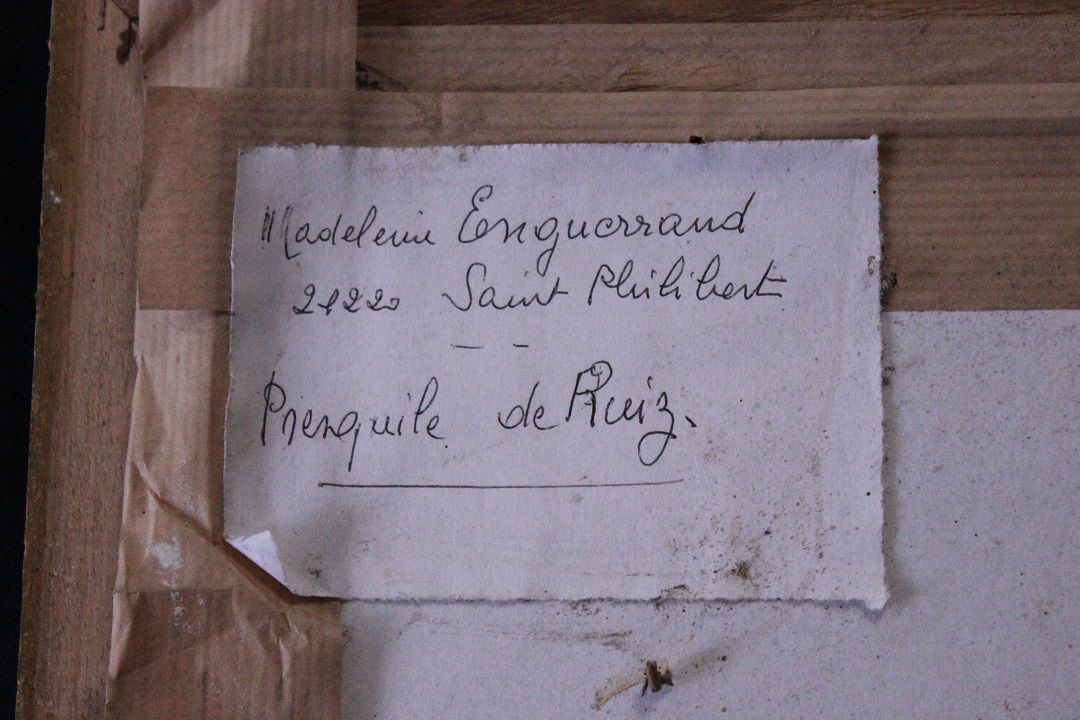 Madeleine Enguerrand
21220 Saint Philibert
— –
Presquile de Ruiz.